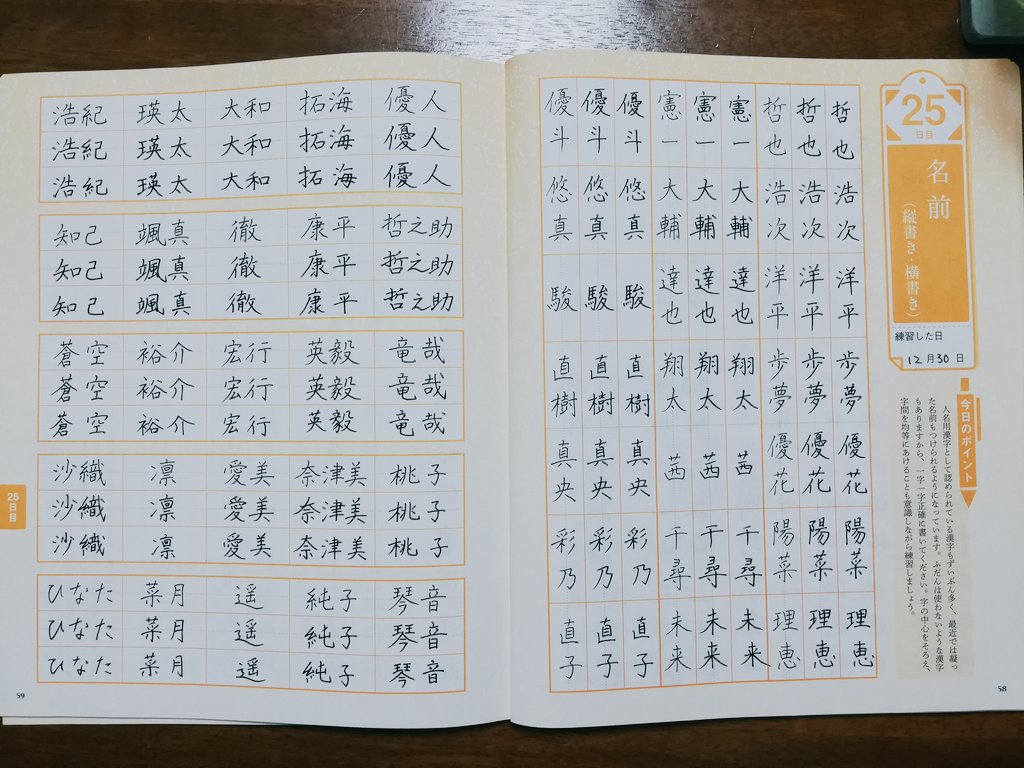 25
日目
名前
（縦書き・横書き）
練習した日
12月30日
今日のポイント
人名用漢字として認められている漢字もずいぶん多く、最近では凝っ
た名前もつけられるようになっています。ふだんは使わないような漢字
もありますから、一字一字正確に書いてください。字の中心をそろえ、
字間を均等にあけることも意識しながら練習しましょう。
哲也 浩次 洋平 歩夢 優花 陽菜 理恵
哲也 浩次 洋平 歩夢 優花 陽菜 理恵
哲也 浩次 洋平 歩夢 優花 陽菜 理恵
憲一 大輔 達也 翔太 茜 千尋 未来
憲一 大輔 達也 翔太 茜 千尋 未来
憲一 大輔 達也 翔太 茜 千尋 未来
優斗 悠真 駿 直樹 真央 彩乃 直子
優斗 悠真 駿 直樹 真央 彩乃 直子
優斗 悠真 駿 直樹 真央 彩乃 直子
58
浩紀 瑛太 大和 拓海 優人
浩紀 瑛太 大和 拓海 優人
浩紀 瑛太 大和 拓海 優人
知己 颯真 徹 康平 哲之助
知己 颯真 徹 康平 哲之助
知己 颯真 徹 康平 哲之助
蒼空 裕介 宏行 英毅 竜哉
蒼空 裕介 宏行 英毅 竜哉
蒼空 裕介 宏行 英毅 竜哉
沙織 凛 愛美 奈津美 桃子
沙織 凛 愛美 奈津美 桃子
沙織 凛 愛美 奈津美 桃子
ひなた 菜月 遥 純子 琴音
ひなた 菜月 遥 純子 琴音
ひなた 菜月 遥 純子 琴音
25日目
59